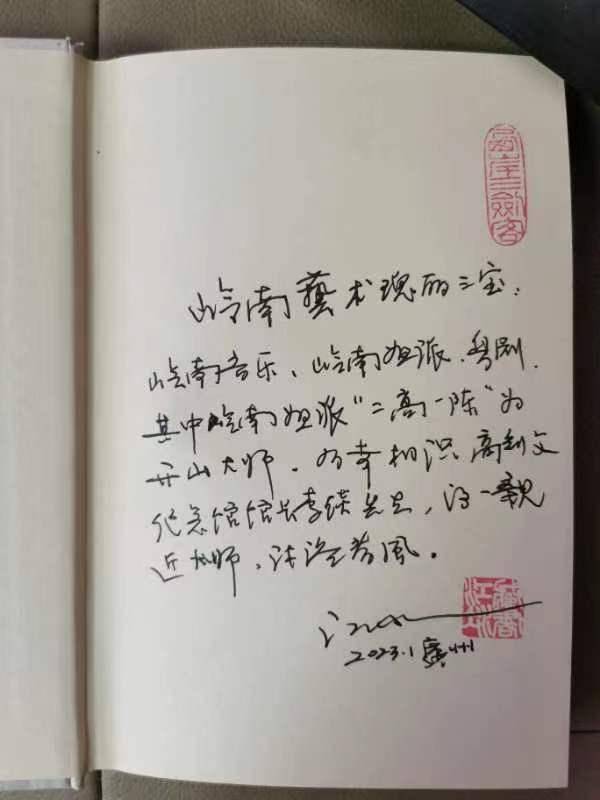 三劍客
岭南藝术瑰丽三宝：
岭南音乐、岭南画派、粤剧.
其中岭南画派"二高一陈"为
开山大师。有幸相识高剑父
纪念馆馆长李先生，得一亲
近大师，沐浴风。
藏書
2023.1 廣州